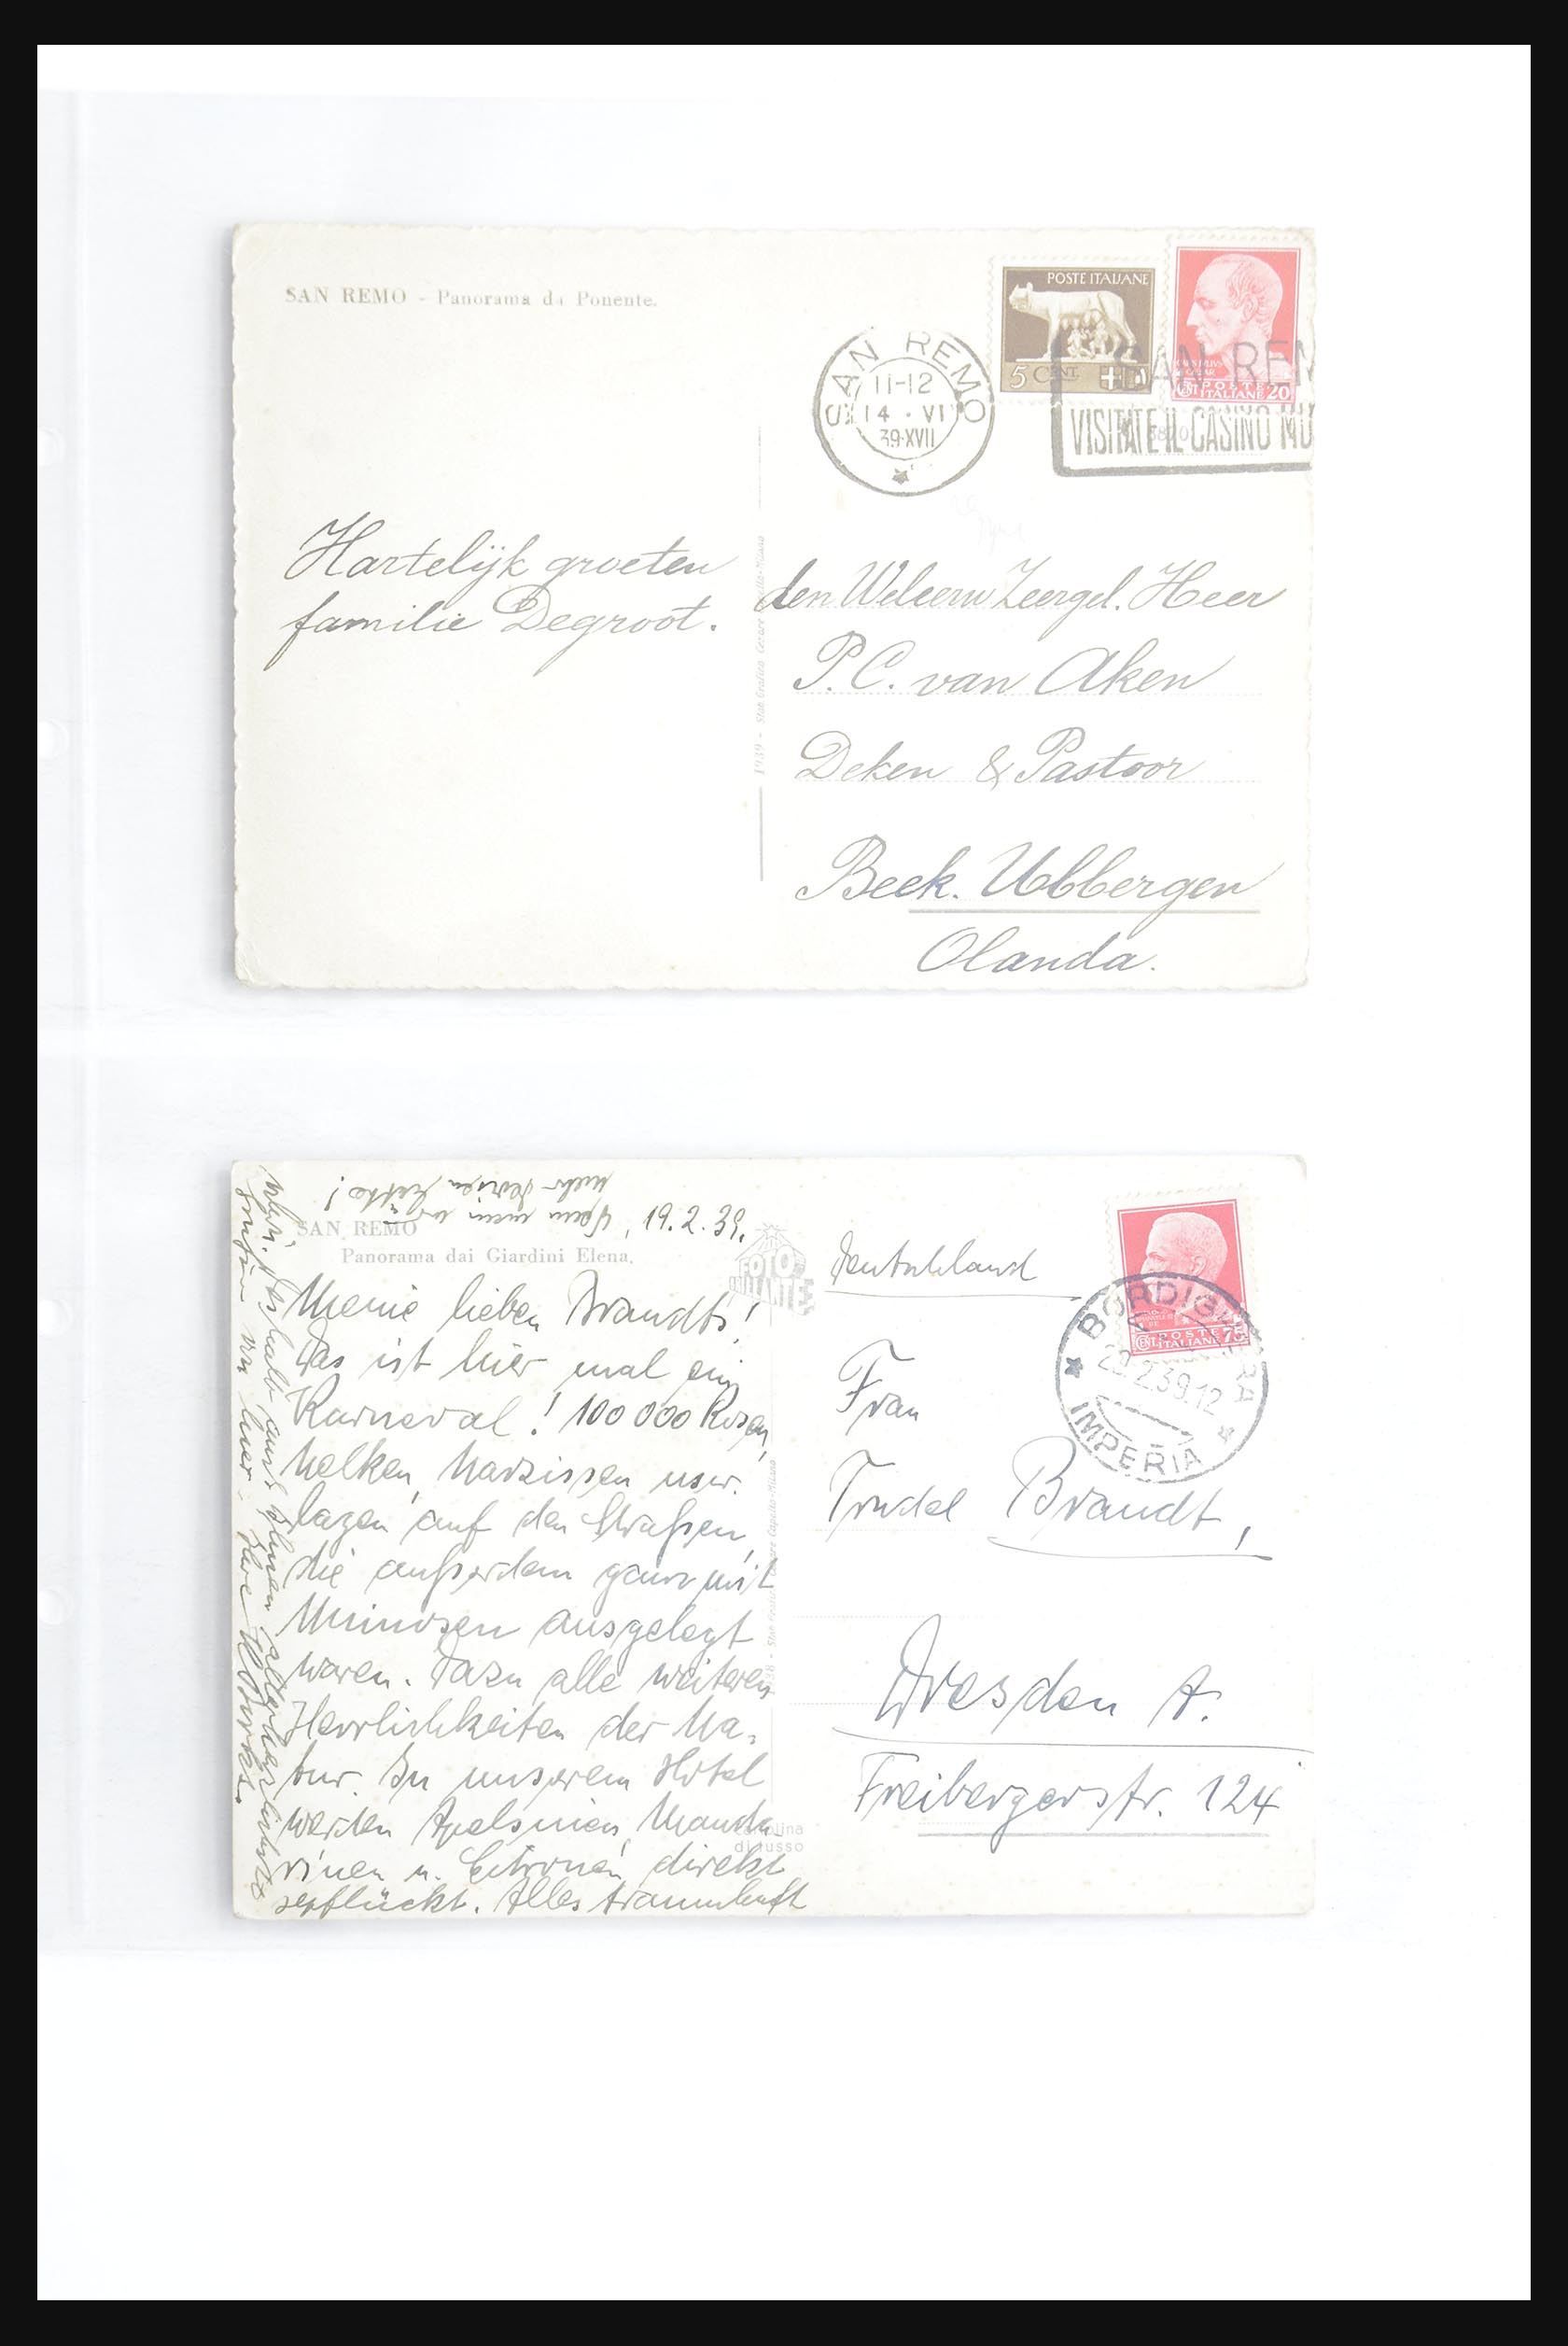 SAN REMO - Panorama da Ponente.
POSTE ITALIANE
5 CENT.
POSTE
ITALIANE 20
SAN REMO
11-12
14 · VI
39·XVII
SAN REM
VISITATE IL CASINO MU
Hartelijk groeten
familie Degroot.
1939 - Stab Grafico Cesare Capello-Milano
den Weleerw Zeergel. Heer
P. C. van Aken
Deken & Pastoor
Beek. Ubbergen
Olanda.
19.2.39.
SAN REMO
Panorama dai Giardini Elena.
FOTO
BRILLANTE
Meine lieben Brandts!
Das ist hier mal ein
Karneval! 100 000 Rosen,
Nelken, Narzissen usw.
lagen auf den Straßen,
die außerdem ganz mit
Mimosen ausgelegt
waren. Dazu alle weiteren
Herrlichkeiten der Na-
tur. In unserem Hotel
werden Apelsinen, Manda-
rinen u. Citronen direkt
gepflückt. Alles traumhaft
schön. Deshalb auch Ihnen allerherzlichste
Grüße von hier. Ihre
Wenn man nur
mehr Devisen hätte!
Cesare Capello-Milano
Cartolina
di lusso
Deutschland
POSTE
ITALIANE 75
BORDIGHERA
20.2.39.12
IMPERIA
Frau
Trudel Brandt,
Dresden A.
Freibergerstr. 124